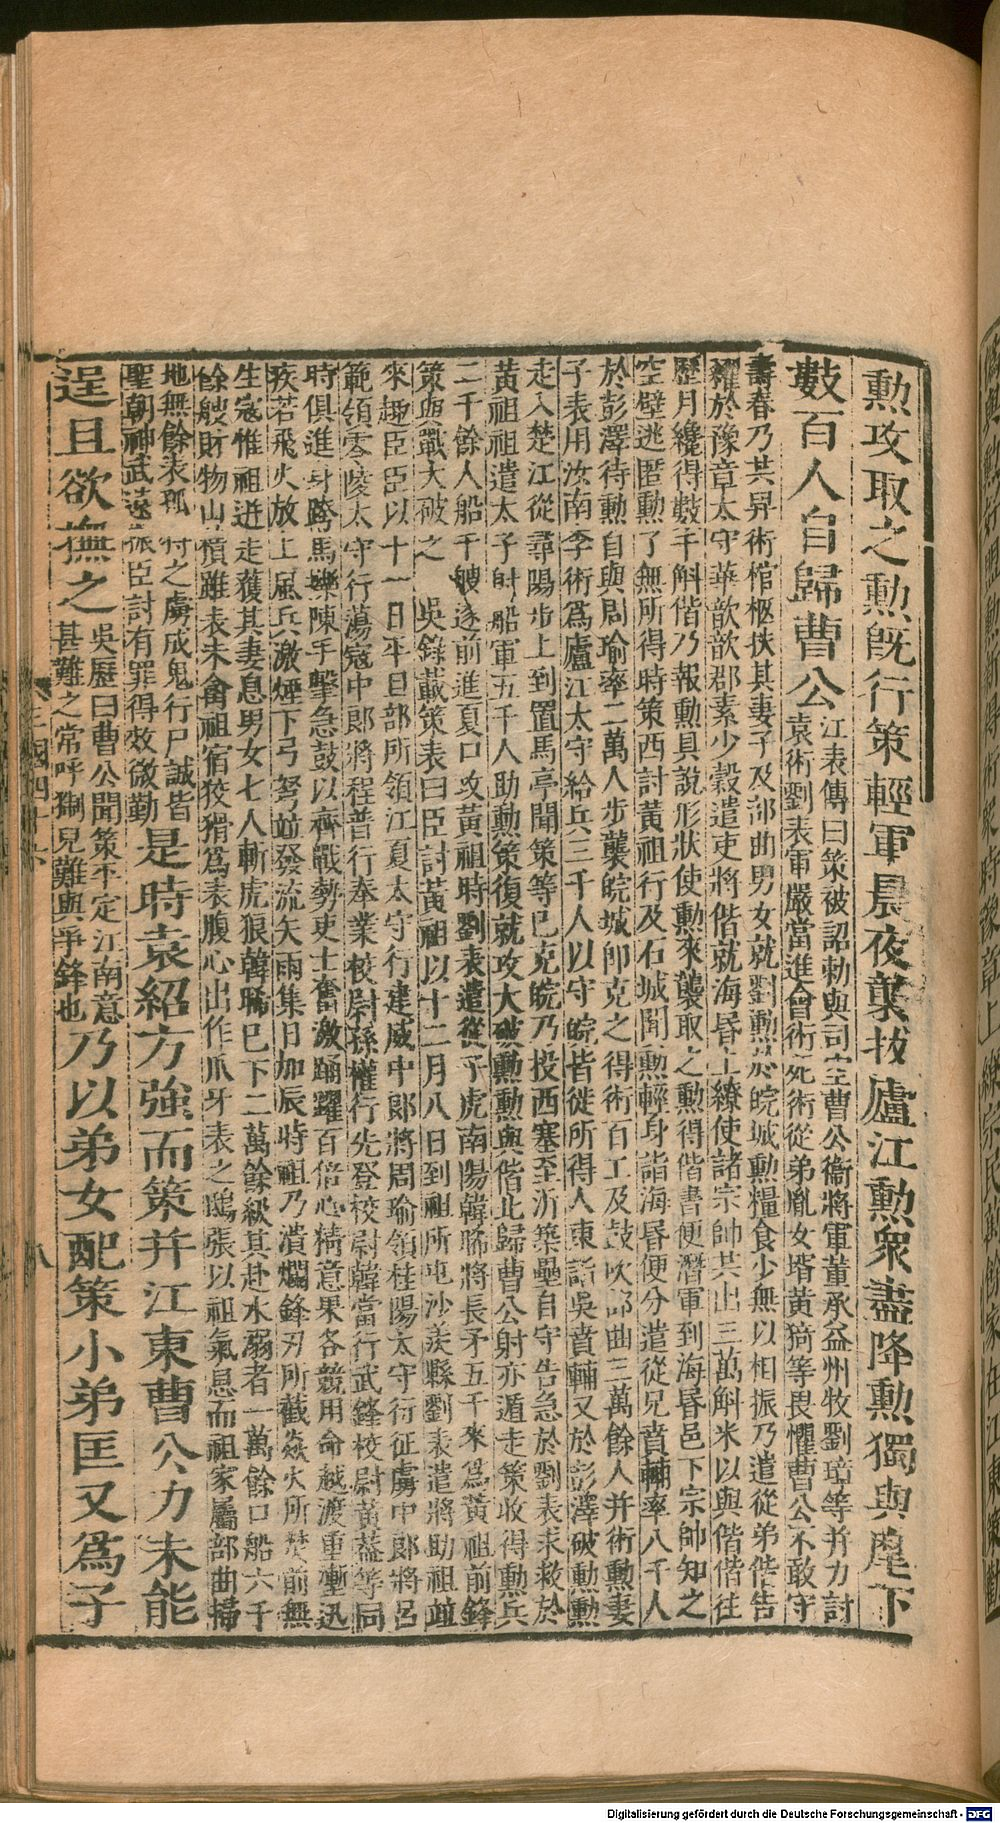 勲攻取之勲既行策輕軍晨夜襲拔廬江勲衆盡降勲獨與麾下
數百人自歸曹公
江表傳曰策被詔勑與司空曹公衞將軍董承益州牧劉璋等并力討
袁術劉表軍嚴當進會術死術從弟胤女壻黃猗等畏懼曹公不敢守
壽春乃共舁術棺柩扶其妻子及部曲男女就劉勲於皖城勲糧食少無以相振乃遣從弟偕告
糴於豫章太守華歆歆郡素少穀遣吏將偕就海昬上繚使諸宗帥共出三萬斛米以與偕偕往
歷月纔得數千斛偕乃報勲具說形狀使勲來襲取之勲得偕書便潛軍到海昬邑下宗帥知之
空壁逃匿勲了無所得時策西討黃祖行及石城聞勲輕身詣海昬便分遣從兄賁輔率八千人
於彭澤待勲自與周瑜率二萬人步襲皖城卽克之得術百工及鼓吹部曲三萬餘人并術勲妻
子表用汝南李術爲廬江太守給兵三千人以守皖皆徙所得人東詣吳賁輔又於彭澤破勲勲
走入楚江從尋陽步上到置馬亭聞策等已克皖乃投西塞至沂築壘自守告急於劉表求救於
黃祖祖遣太子射船軍五千人助勲策復就攻大破勲勲與偕北歸曹公射亦遁走策收得勲兵
二千餘人船千艘遂前進夏口攻黃祖時劉表遣從子虎南陽韓晞將長矛五千來爲黃祖前鋒
策與戰大破之 吳錄載策表曰臣討黃祖以十二月八日到祖所屯沙羨縣劉表遣將助祖並
來趣臣臣以十一日平旦部所領江夏太守行建威中郎將周瑜領桂陽太守行征虜中郎將呂
範領零陵太守行蕩寇中郎將程普行奉業校尉孫權行先登校尉韓當行武鋒校尉黃蓋等同
時俱進身跨馬櫟陳手擊急鼓以齊戰勢吏士奮激踊躍百倍心精意果各競用命越渡重塹迅
疾若飛火放上風兵激煙下弓弩並發流矢雨集日加辰時祖乃潰爛鋒刃所截焱火所焚前無
生寇惟祖迸走獲其妻息男女七人斬虎狼韓晞已下二萬餘級其赴水溺者一萬餘口船六千
餘艘財物山積雖表未禽祖宿狡猾爲表腹心出作爪牙表之鴟張以祖氣息而祖家屬部曲掃
地無餘表孤特之虜成鬼行尸誠皆
聖朝神武遠振臣討有罪得效微勤
是時袁紹方強而策并江東曹公力未能
逞且欲撫之
吳歷曰曹公聞策平定江南意
甚難之常呼猘兒難與爭鋒也
乃以弟女配策小弟匡又爲子
三國四十六 八
Digitalisierung gefördert durch die Deutsche Forschungsgemeinschaft - DFG